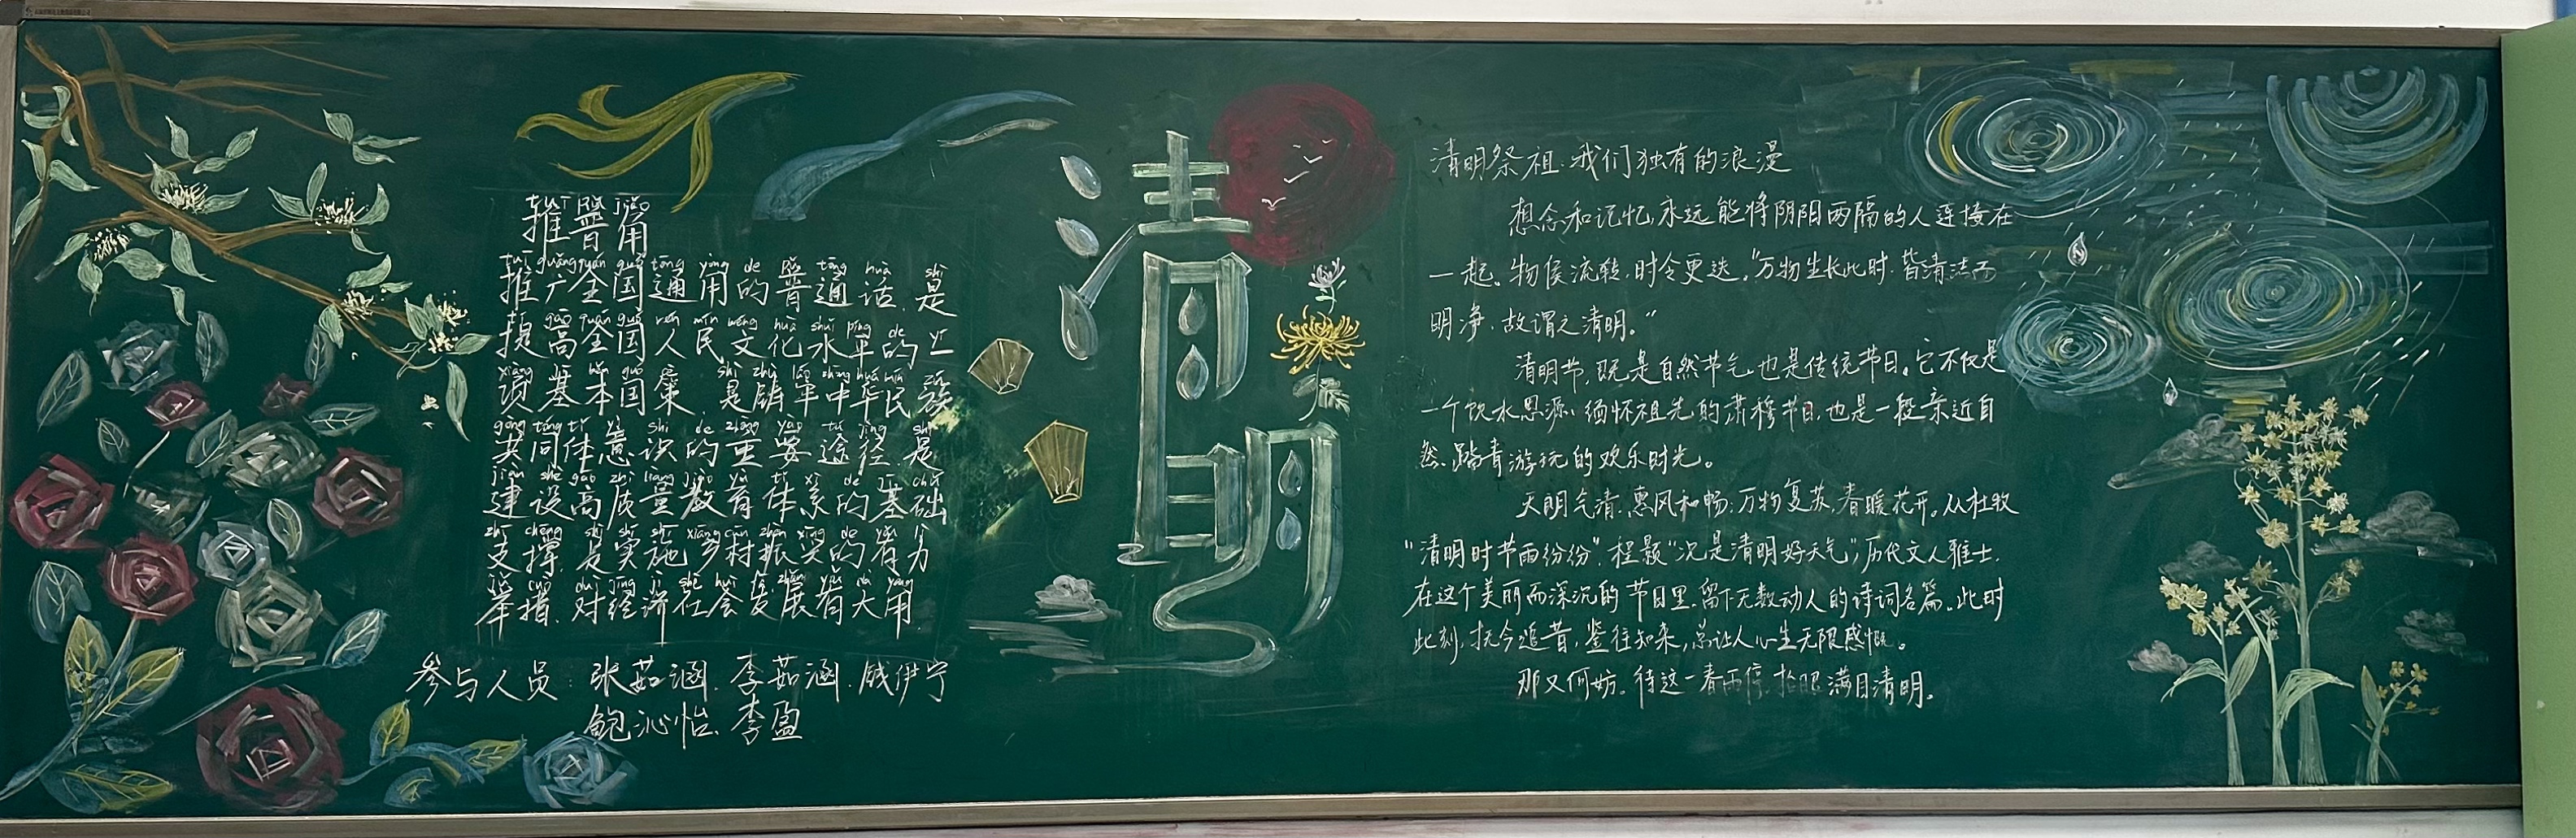 tuī pǔ jiǎo
推普角
tuī guǎng quán guó tōng yòng de pǔ tōng huà shì
推广全国通用的普通话,是
tí gāo quán guó rén mín wén huà shuǐ píng de yī
提高全国人民文化水平的一
xiàng jī běn guó cè shì zhù láo zhōng huá mín zú
项基本国策,是铸牢中华民族
gòng tóng tǐ yì shí de zhòng yào tú jìng shì
共同体意识的重要途径,是
jiàn shè gāo zhì liàng jiào yù tǐ xì de jī chǔ
建设高质量教育体系的基础
zhī chēng shì shí shī xiāng cūn zhèn xīng de yǒu lì
支撑,是实施乡村振兴的有力
jǔ cuò duì jīng jì shè huì fā zhǎn yǒu dà yòng
举措,对经济社会发展有大用
参与人员:张茹涵、李茹涵、钱伊宁
鲍沁怡、李盈
清明
清明祭祖:我们独有的浪漫
想念和记忆,永远能将阴阳两隔的人连接在
一起。物侯流转,时令更迭。“万物生长此时,皆清洁而
明净,故谓之清明。”
清明节,既是自然节气,也是传统节日。它不仅是
一个饮水思源、缅怀祖先的肃穆节日,也是一段亲近自
然、踏青游玩的欢乐时光。
天明气清,惠风和畅;万物复苏,春暖花开。从杜牧
“清明时节雨纷纷”,程颢“况是清明好天气”,历代文人雅士,
在这个美丽而深沉的节日里,留下无数动人的诗词名篇。此时
此刻,抚今追昔,鉴往知来,总让人心生无限感慨。
那又何妨。待这一春雨停,抬眼满目清明。